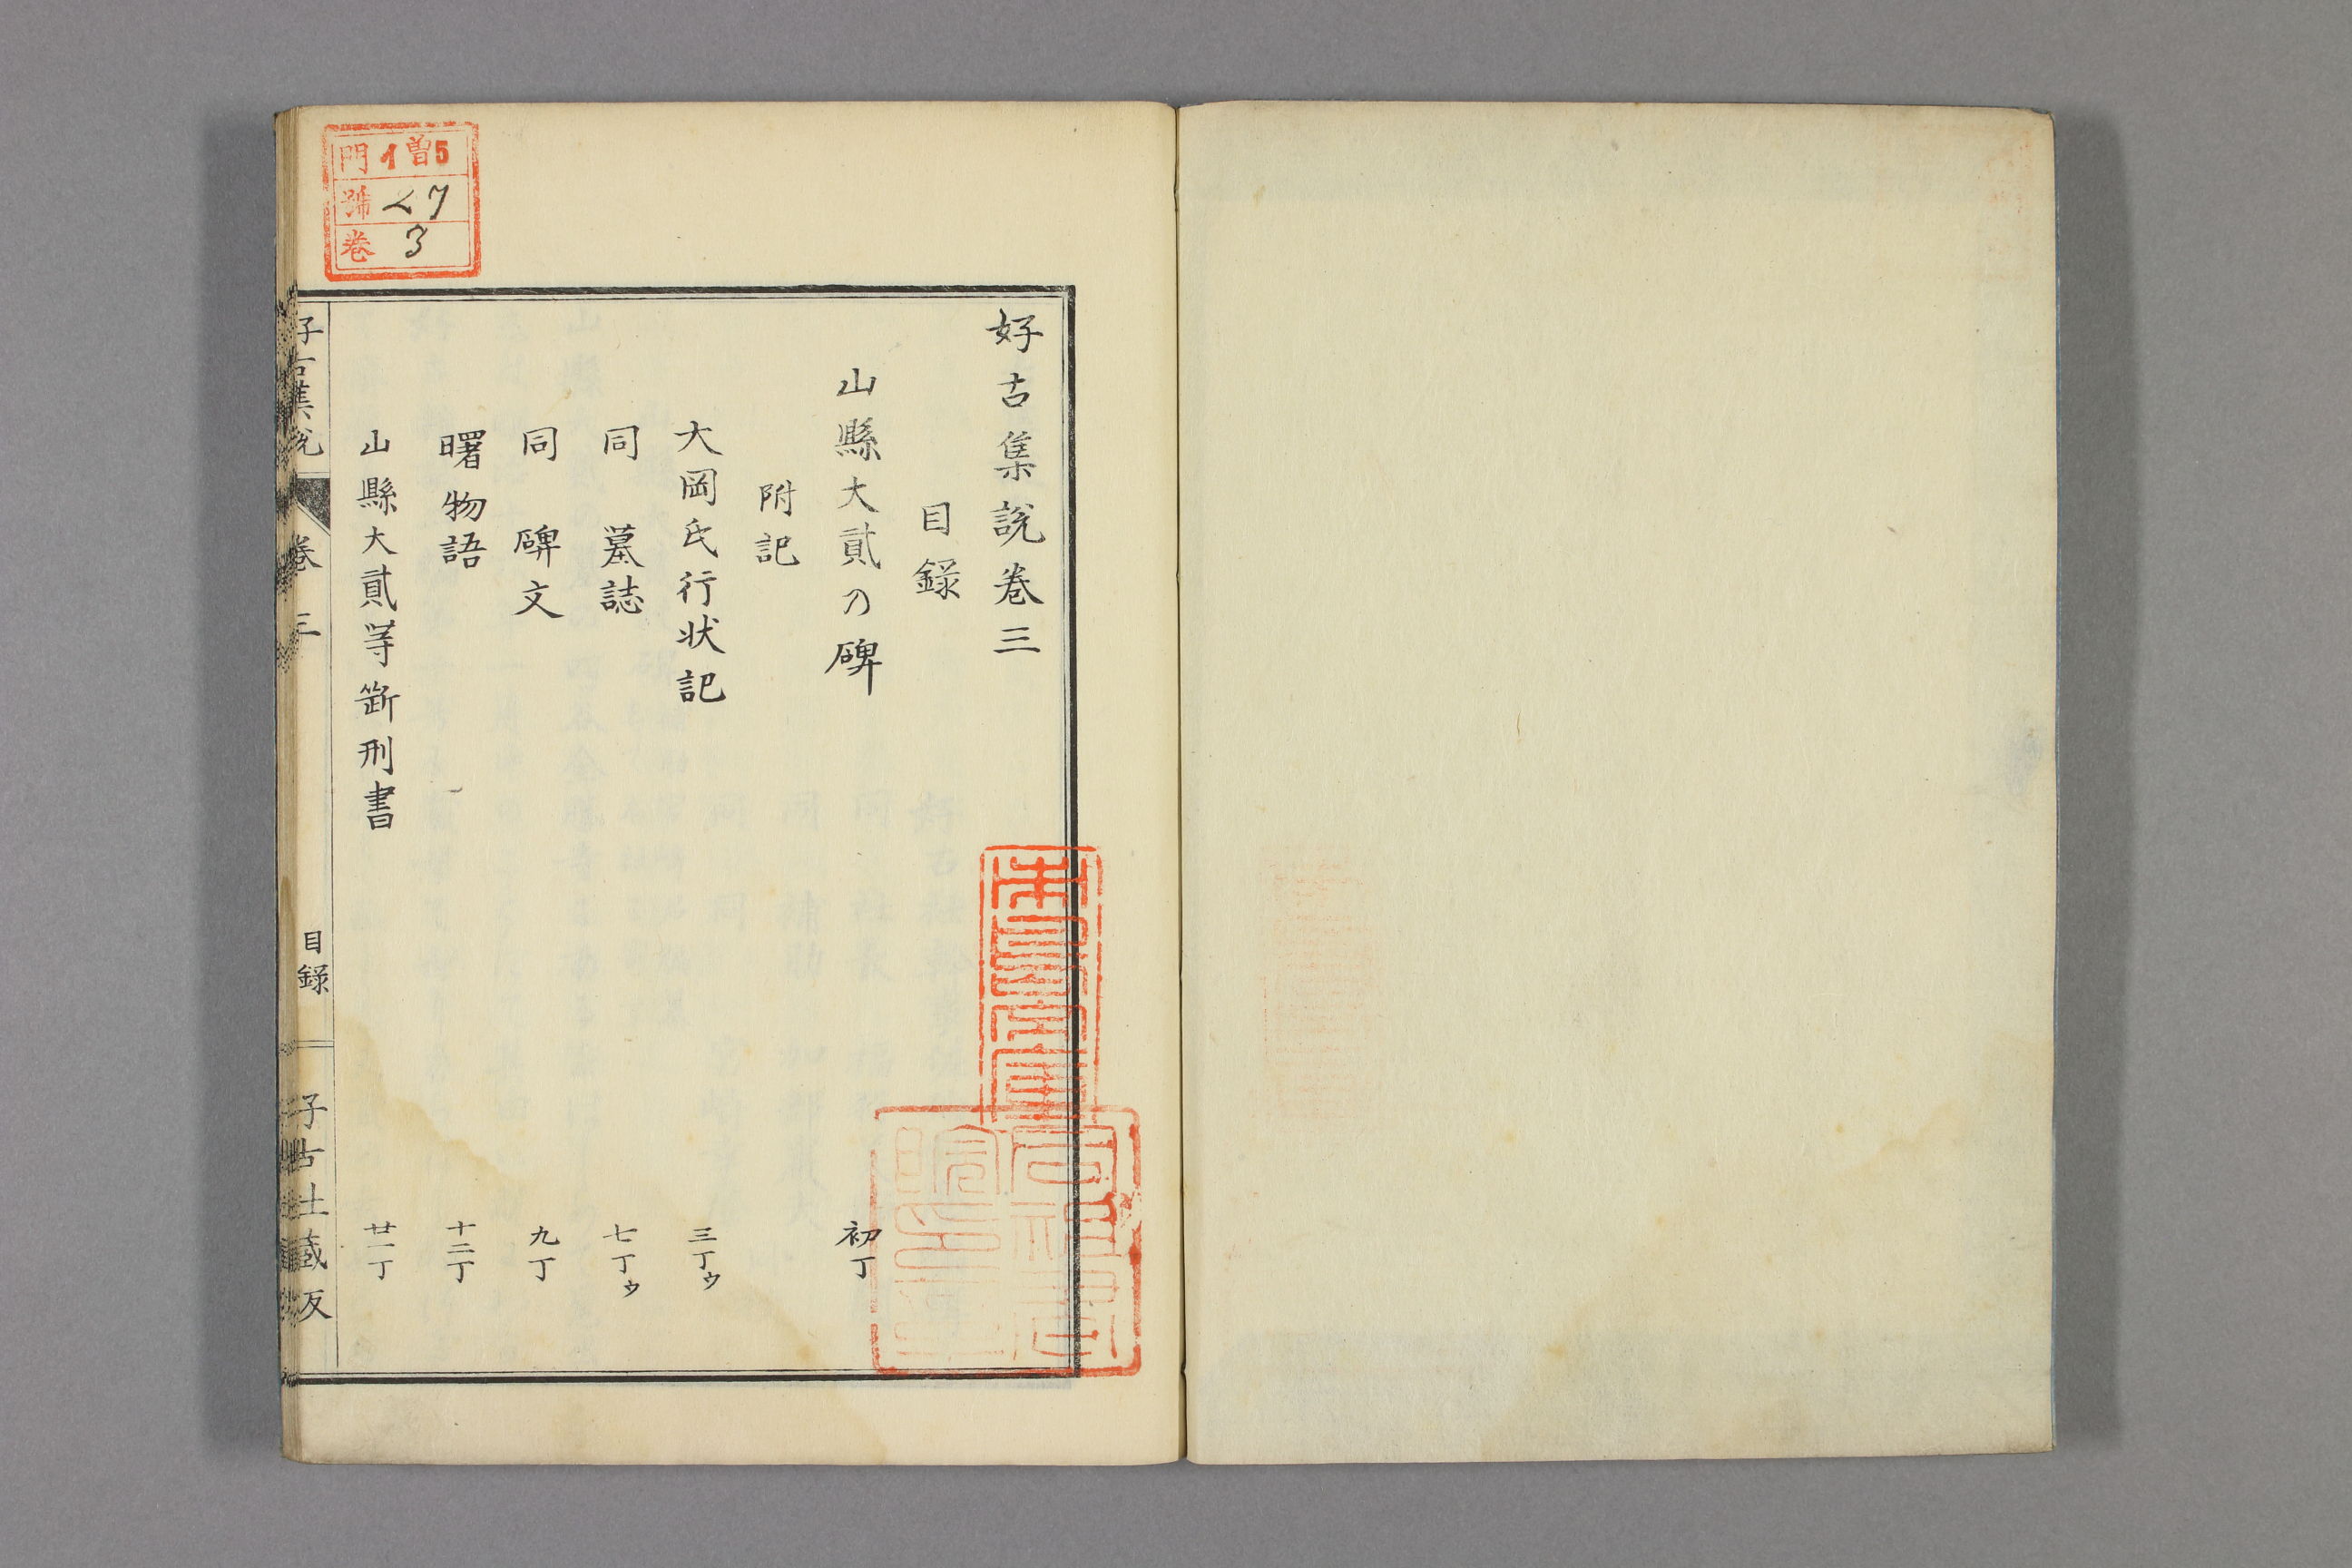 好古集説巻三
目録
山縣大貳の碑 初丁
附記
大岡氏行状記 三丁ウ
同 墓誌 七丁ウ
同 碑文 九丁
曙物語 十二丁
山縣大貳等断刑書 廿一丁
好古集説 巻三 目録
門 1曽5
號 27
巻 3